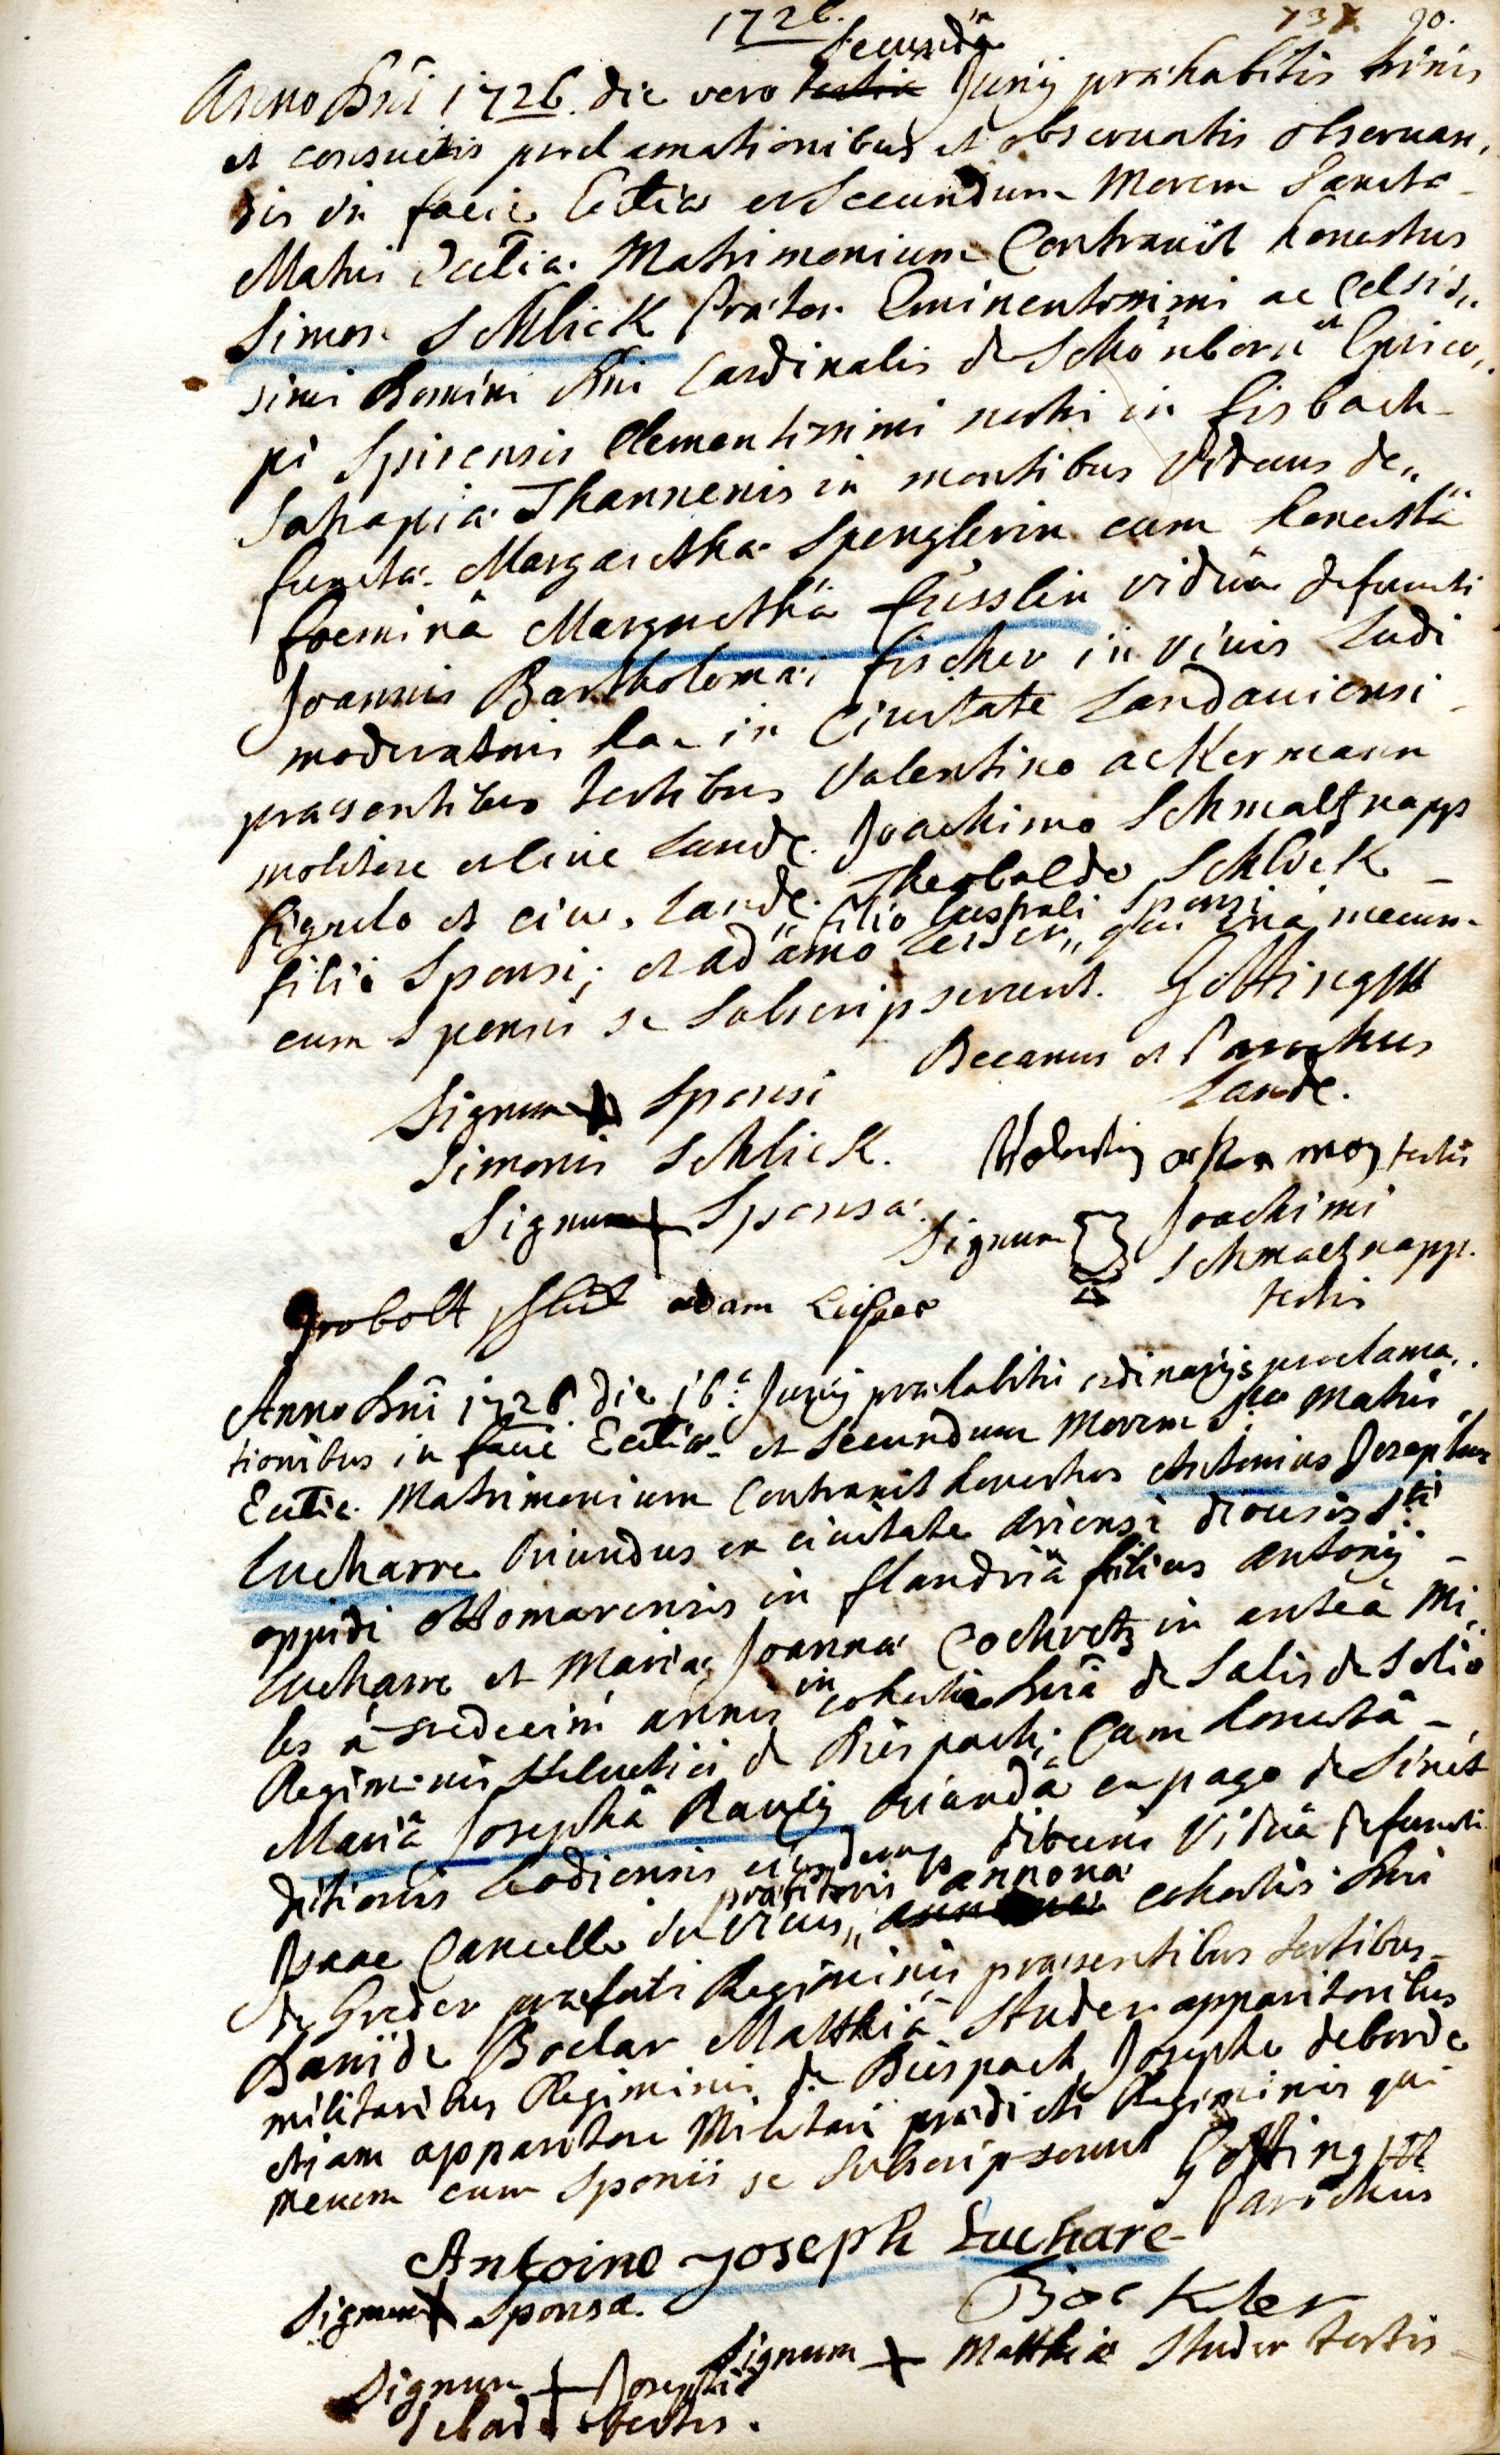 1726.
737 90.
Secundâ
Anno Dni 1726. die vero tertia Junÿ præhabitis trinis
et consuetis proclamationibus et observatis observan,
dis in facie Ecclia et Secundum Morem Sancta
Matris Ecclia. Matrimonium Contraxit honestus
Simon Schlick Prætor Eminentissimi ac Celsis,,
simi Domini Dni Cardinalis de Schönborn Episco,,
pi Spirensis Clementissimi nostri in Eisbach
Satrapia Thannensis in montibus viduus de,,
functa Margaretha Spenglerin cum honestâ
foeminâ Margarethâ füsslin viduâ defuncti
Joannis Bartholomæi fischer in vivis Ludi
moderatoris hac in Civitate Landaviensi
præsentibus testibus Valentino ackermann
molitore et cive Landæ. Joachimo Schmaltznapp
figulo et cive Landæ. Theobaldo Schlick
,, filio lustrali Sponsi
filio Sponsi; et adamo Leiser,, qui una mecum
cum Sponsis se Subscripserunt. Gotting
Decanus et Parochus
Landæ.
Signum + Sponsi
Simonis Schlick.
Signum + Sponsa.
testis
Signum Joachimi
Schmaltznapp.
testis
adam Leiser
Anno Dni 1726 die 16.a Junÿ præhabitis ordinarÿs proclama,,
tionibus in facie Ecclia et Secundum Morem S.ta Matris
Ecclia. Matrimonium Contraxit honestus Antonius Josephus
Lucharre Oriundus ex civitate Ariensi diocesis S.ti
oppidi Ottomarensis in flandriâ filius Antonÿ
Lucharre et Maria Joanna Cochretz in anteâ Mi,,
les à sredecim annis in cohorte Dni de Salis de Solio
Regiminis Helvetici de Buspach; Cum honestâ
Mariâ Josephâ oriundâ ex pago de Sinet
ditionis Leodiensis eiusdemq dioecesis Viduâ defuncti
præbitoris annona
Isaac Cancelle in vivis,, cohortis Dni
de Greder præfati Regiminis præsentibus testibus
Davide Boclar Matthiâ Studer apparitoribus
militaribus Regiminis de Buspach, Josepho deborde
etiam apparitore Militari prædicti Regiminis qui
mecum cum Sponsis se Subscripserunt Gotting
Parochus
Antoine Joseph Luchare
Signum + Sponsa.
Boeckler
Signum + Matthiæ Studer testis
Signum + Josephi
testis.